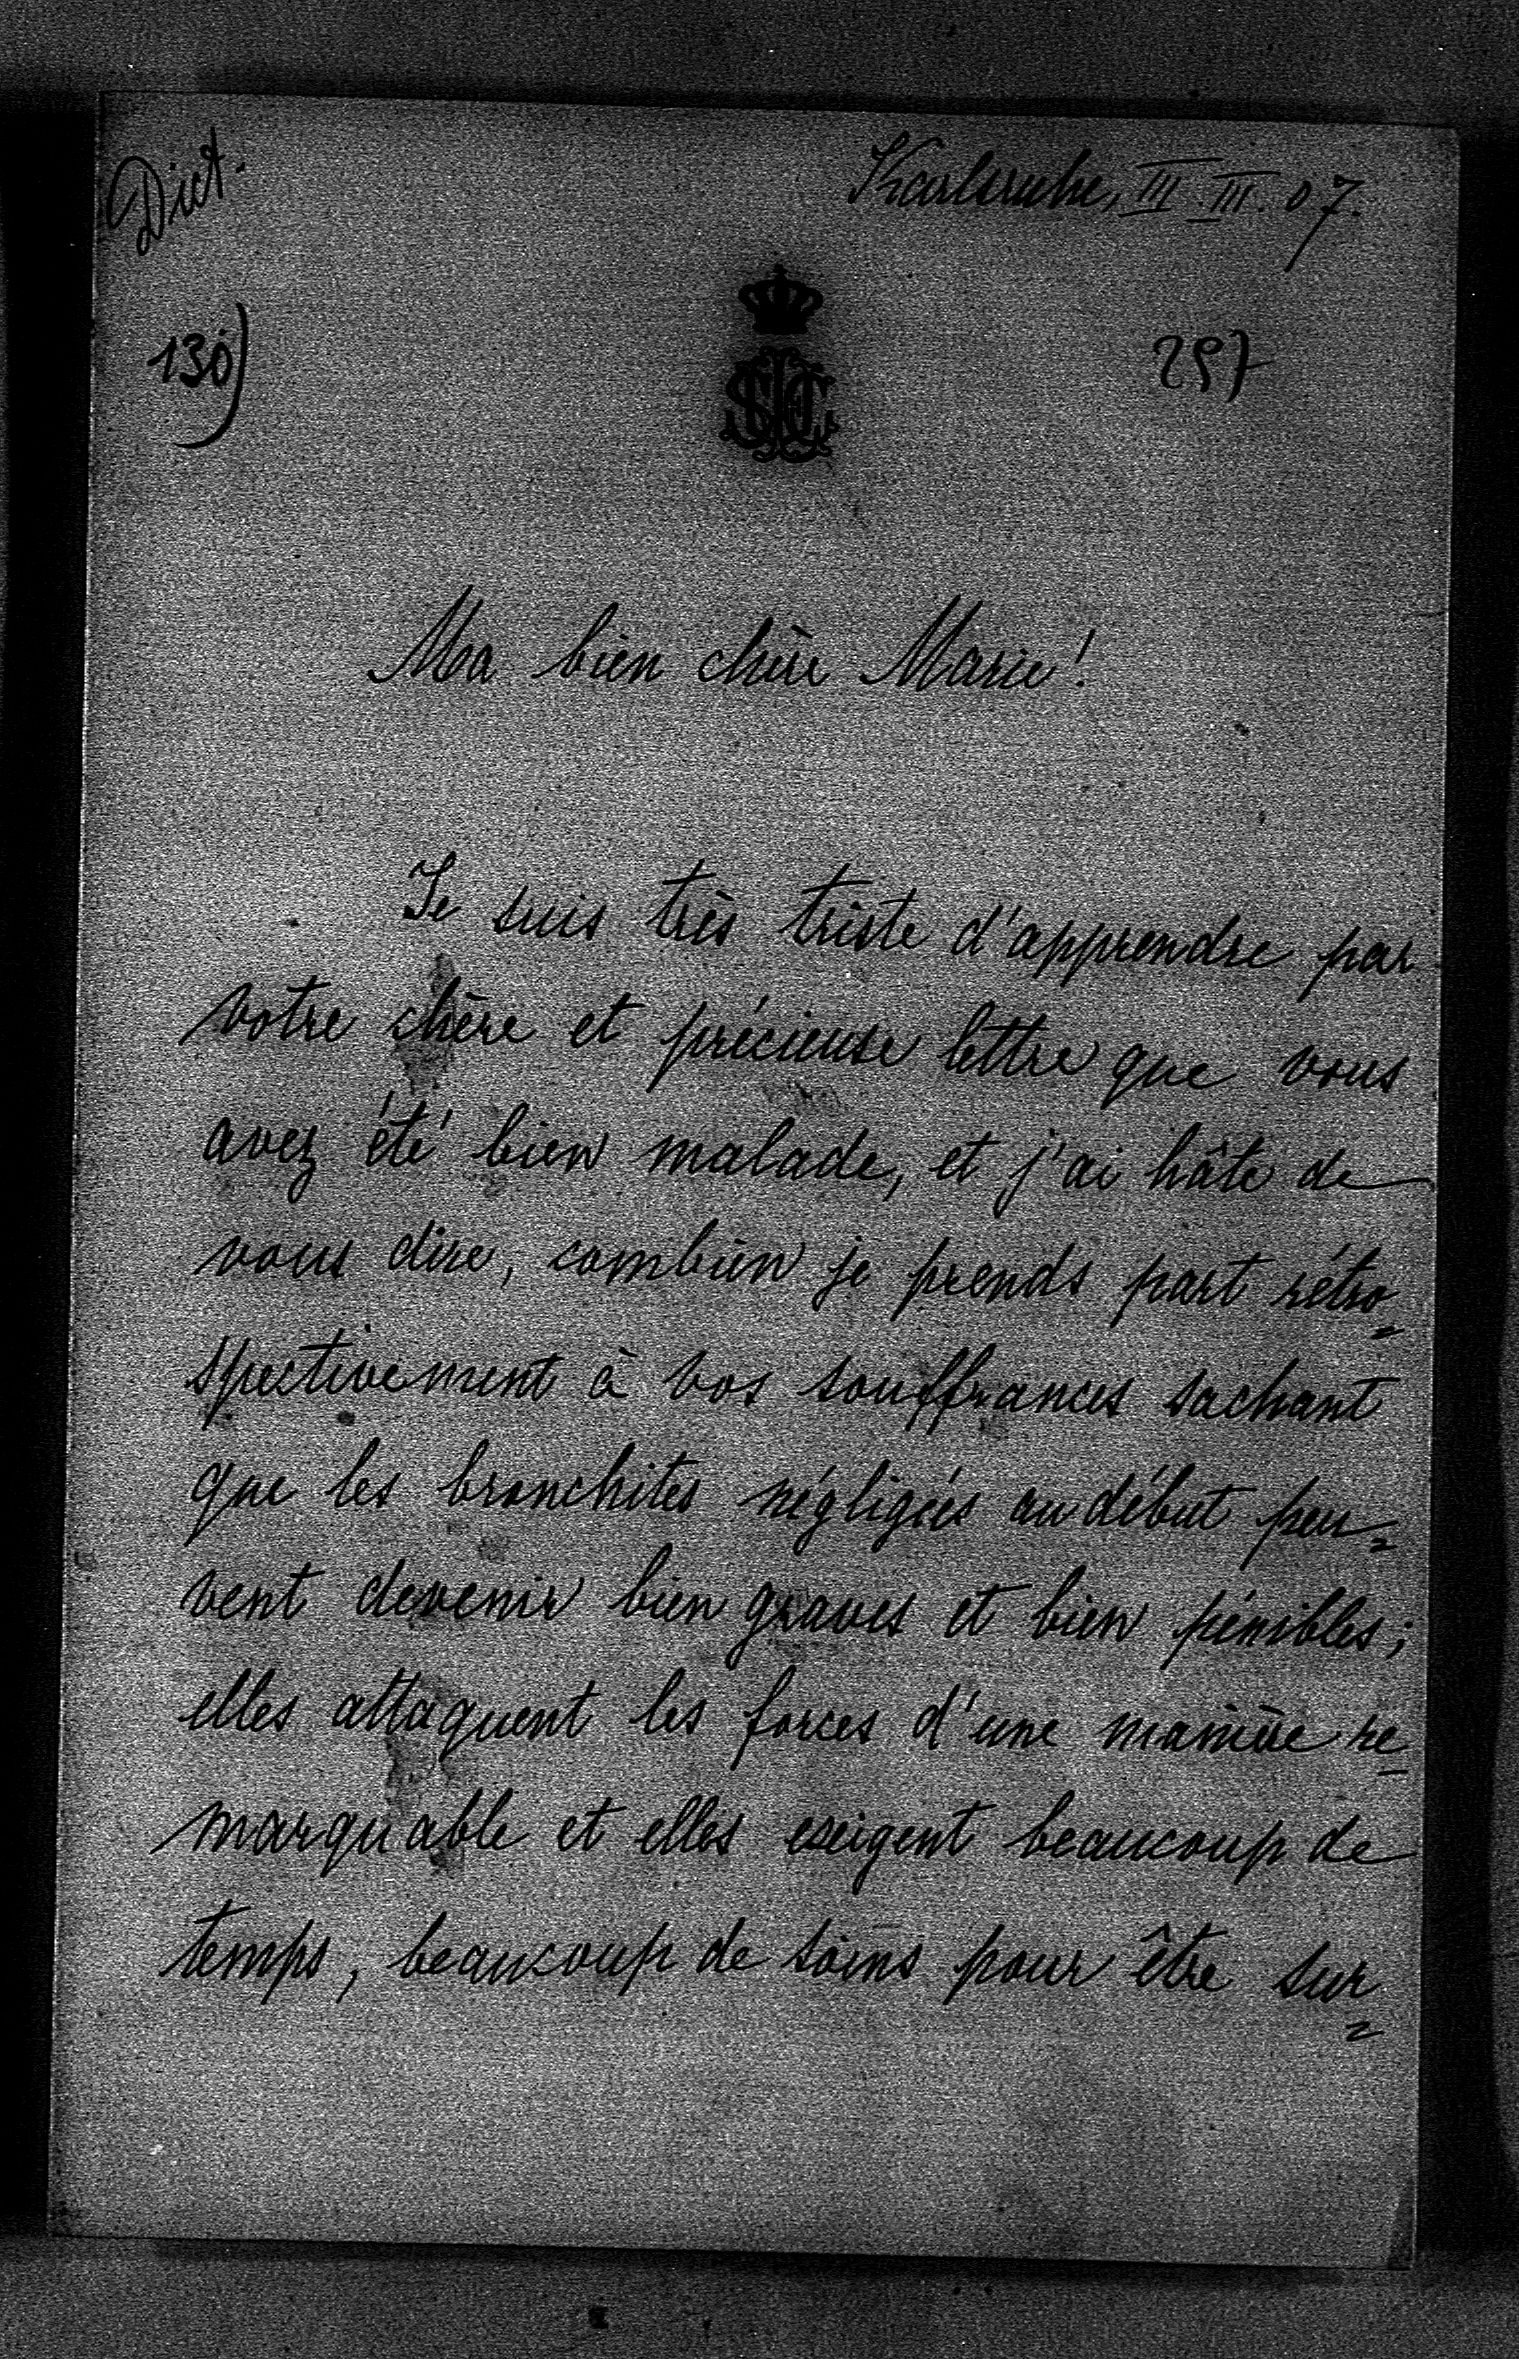 Dict.
Karlsruhe, III. III. 07.
130)
297
Ma bien chère Marie!
Je suis très triste d'apprendre par
votre chère et précieuse lettre que vous
avez été bien malade, et j'ai hâte de
vous dire, combien je prends part rétro=
spectivement à vos souffrances sachant
que les bronchites négligées au début peu=
vent devenir bien graves et bien pénibles;
elles attaquent les forces d'une manière re=
marquable et elles exigent beaucoup de
temps, beaucoup de soins pour être sur=